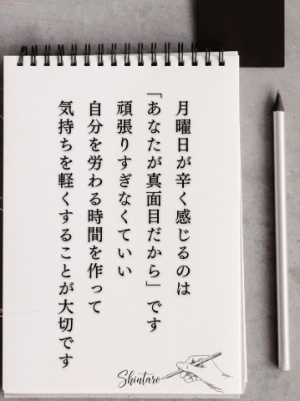 月曜日が辛く感じるのは
「あなたが真面目だから」です
頑張りすぎなくていい
自分を労わる時間を作って
気持ちを軽くすることが大切です
Shintaro